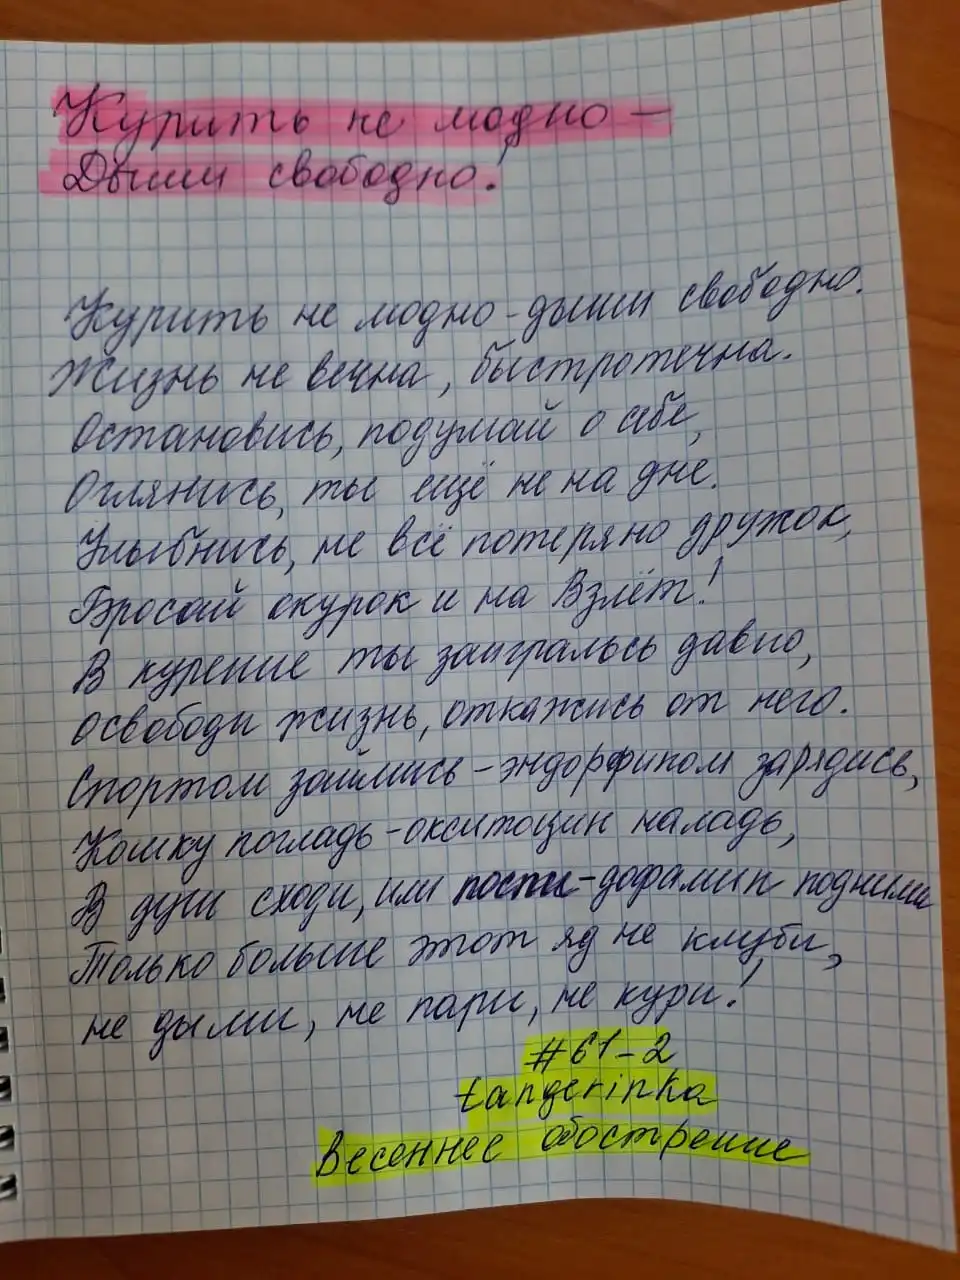 Курить не модно –
Дыши свободно!
Курить не модно - дыши свободно.
Жизнь не вечна, быстротечна.
Остановись, подумай о себе,
Оглянись, ты ещё не на дне.
Улыбнись, не всё потеряно дружок,
Бросай окурок и на Взлёт!
В курение ты заигралась давно,
освободи жизнь, откажись от него.
Спортом займись - эндорфином зарядись,
Кошку погладь - окситоцин наладь,
В душ сходи, или - дофамин подними
Только больше этот яд не клуби,
не дыми, не пари, не кури!
#61-2
tangerinka
Весеннее обострение